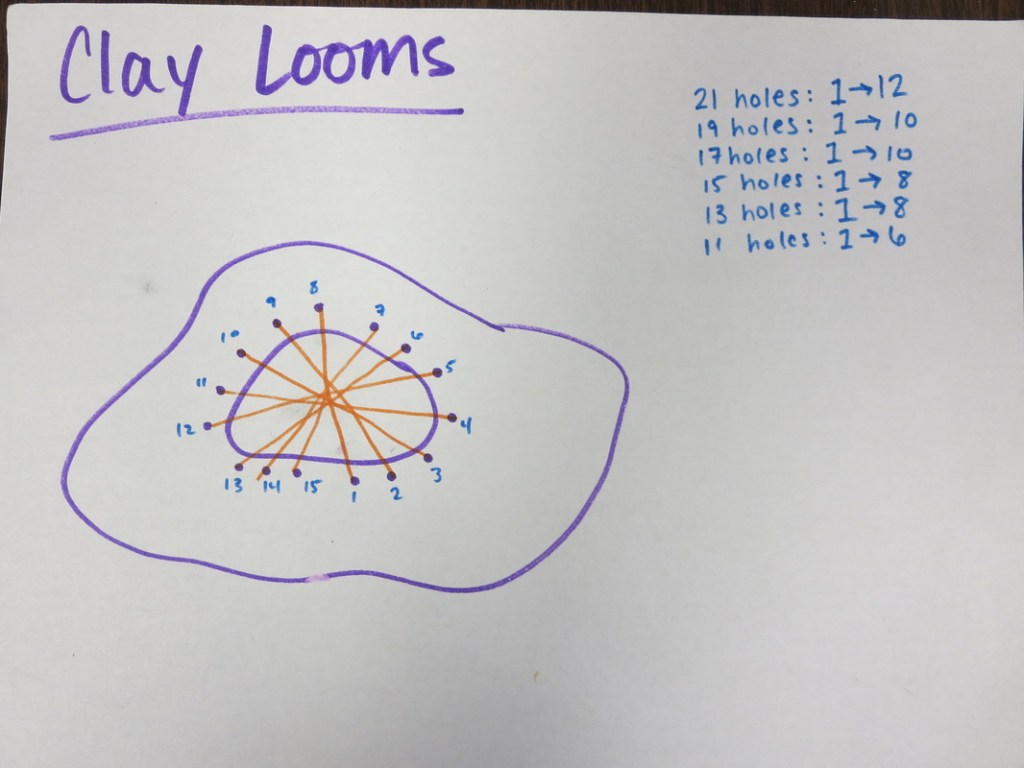 Clay Looms
21 holes: 1→12
19 holes: 1→10
17 holes: 1→10
15 holes: 1→8
13 holes: 1→8
11 holes: 1→6
8
9
7
10
6
5
11
12
4
3
13
14
15
1
2